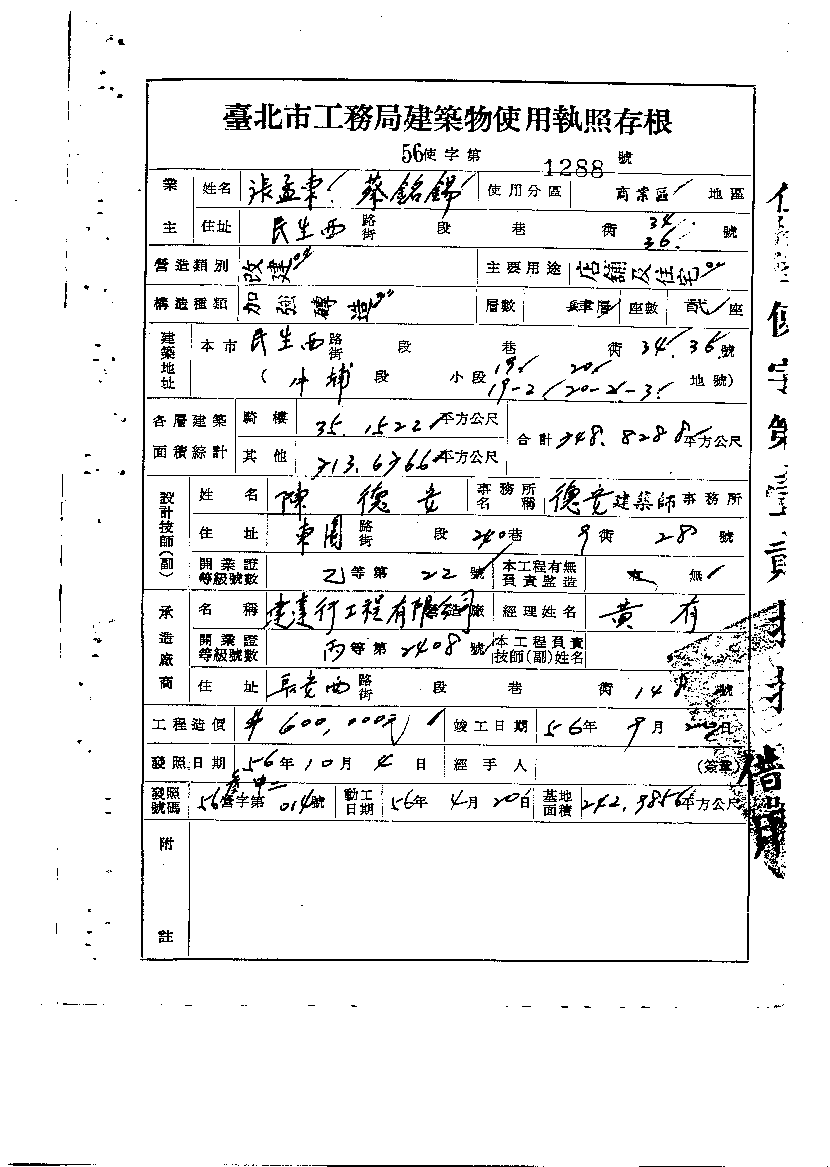 臺北市工務局建築物使用執照存根
56使字第 1288 號
業主 姓名 張孟東 蔡銘錫 使用分區 商業區 地區
住址 民生西 路街 段 巷 街 34. 36. 號
營造類別 改建 主要用途 店舖及住宅
構造種類 加強磚造 層數 肆層 座數 貳 座
建築地址 本市 民生西 路街 段 巷 街 34. 36. 號
( 牛埔 段 小段 19. 20. 19-2 20-2-3. 地號)
各層建築面積綜計 騎樓 35.1522 平方公尺 合計 748.8288 平方公尺
其他 713.6766 平方公尺
設計技師(副) 姓名 陳德 事務所名稱 德 建築師事務所
住址 東園 路街 段 240 巷 9 街 28 號
開業證等級號數 乙等第 22 號 本工程有無負責監造 有 無
承造廠商 名稱 建達行工程有限公司 廠 經理姓名 黃有
開業證等級號數 丙等第 2408 號 本工程負責技師(副)姓名
住址 長安西 路街 段 巷 街 148 號
工程造價 $600,000元 竣工日期 56年 9月 日
發照日期 56年10月4日 經手人 (簽章)
發照號碼 56營字第 014號 動工日期 56年 4月 20日 基地面積 242.9856平方公尺
附註